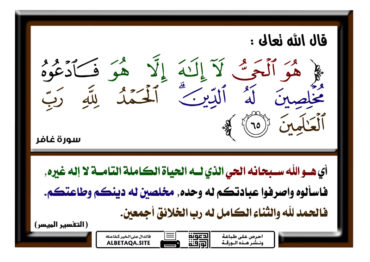 قال الله تعالى :
﴿ هُوَ ٱلْحَىُّ لَآ إِلَـٰهَ إِلَّا هُوَ فَـٱدْعُوهُ
مُخْلِصِينَ لَهُ ٱلدِّينَ ۗ ٱلْحَمْدُ لِلَّهِ رَبِّ
ٱلْعَـٰلَمِينَ ٦٥ ﴾
سورة غافر
أي هـو الله سـبحانه الحي الذي لـه الحياة الكاملة التامـة لا إله غيره،
فاسألوه واصرفوا عبادتكم له وحده، مخلصين له دينكم وطاعتكم.
فالحمد لله والثناء الكامل له رب الخلائق أجمعين.
( التفسير الميسر )
احرص على طباعة
ونشر هذه الورقة
ALBETAQA.SITE